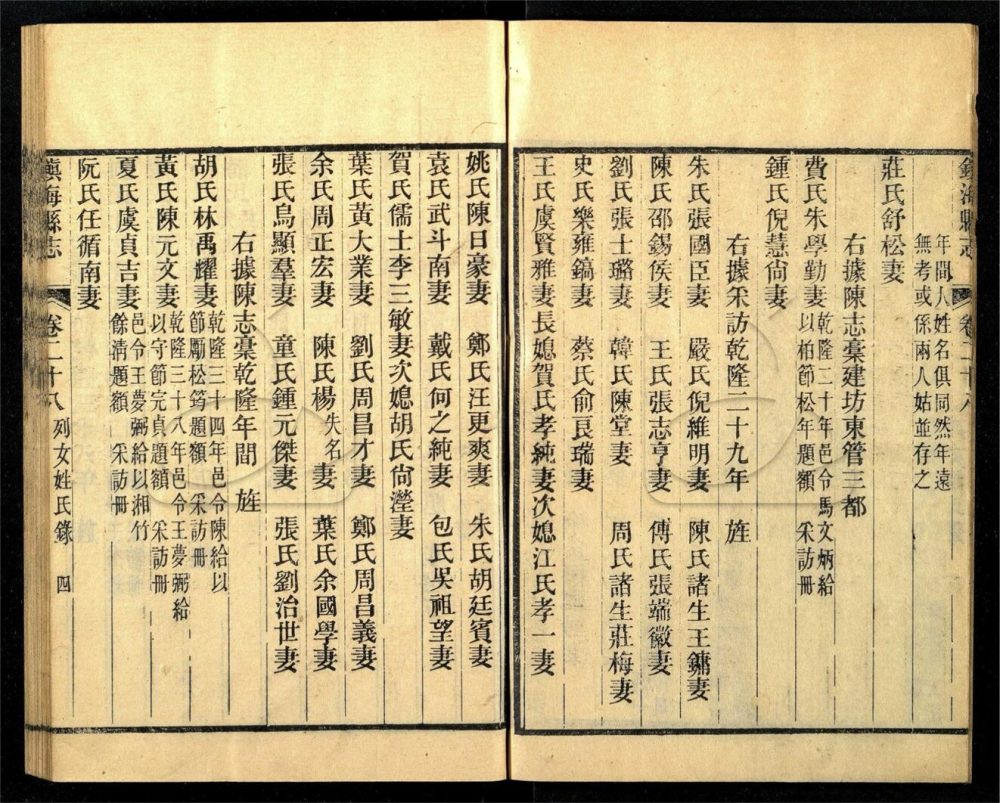 鎮海縣志 卷二十八
年間人姓名俱同然年遠
無考或係兩人姑並存之
莊氏舒松妻
右據陳志稾建坊東管三都
費氏朱學勤妻 乾隆二十年邑令馬文炳給
以柏節松年題額 采訪冊
鍾氏倪慧尙妻
右據采訪乾隆二十九年 旌
朱氏張國臣妻 嚴氏倪維明妻 陳氏諸生王鏞妻
陳氏邵錫侯妻 王氏張志亨妻 傅氏張端徽妻
劉氏張士璐妻 韓氏陳堂妻 周氏諸生莊梅妻
史氏樂雍鎬妻 蔡氏俞良瑞妻
王氏虞賢雅妻長媳賀氏孝純妻次媳江氏孝一妻
姚氏陳日豪妻 鄭氏汪更爽妻 朱氏胡廷賓妻
袁氏武斗南妻 戴氏何之純妻 包氏吳祖望妻
賀氏儒士李三敏妻次媳胡氏尙瀅妻
葉氏黃大業妻 劉氏周昌才妻 鄭氏周昌義妻
余氏周正宏妻 陳氏楊失名妻 葉氏余國學妻
張氏烏顯羣妻 童氏鍾元傑妻 張氏劉治世妻
右據陳志稾乾隆年間 旌
胡氏林禹耀妻 乾隆三十四年邑令陳給以
節勵松筠題額 采訪冊
黃氏陳元文妻 乾隆三十八年邑令王夢弼給
以守節完貞題額 采訪冊
夏氏虞貞吉妻 邑令王夢弼給以湘竹
餘清題額 采訪冊
阮氏任循南妻
鎮海縣志 卷二十八 列女姓氏錄 四